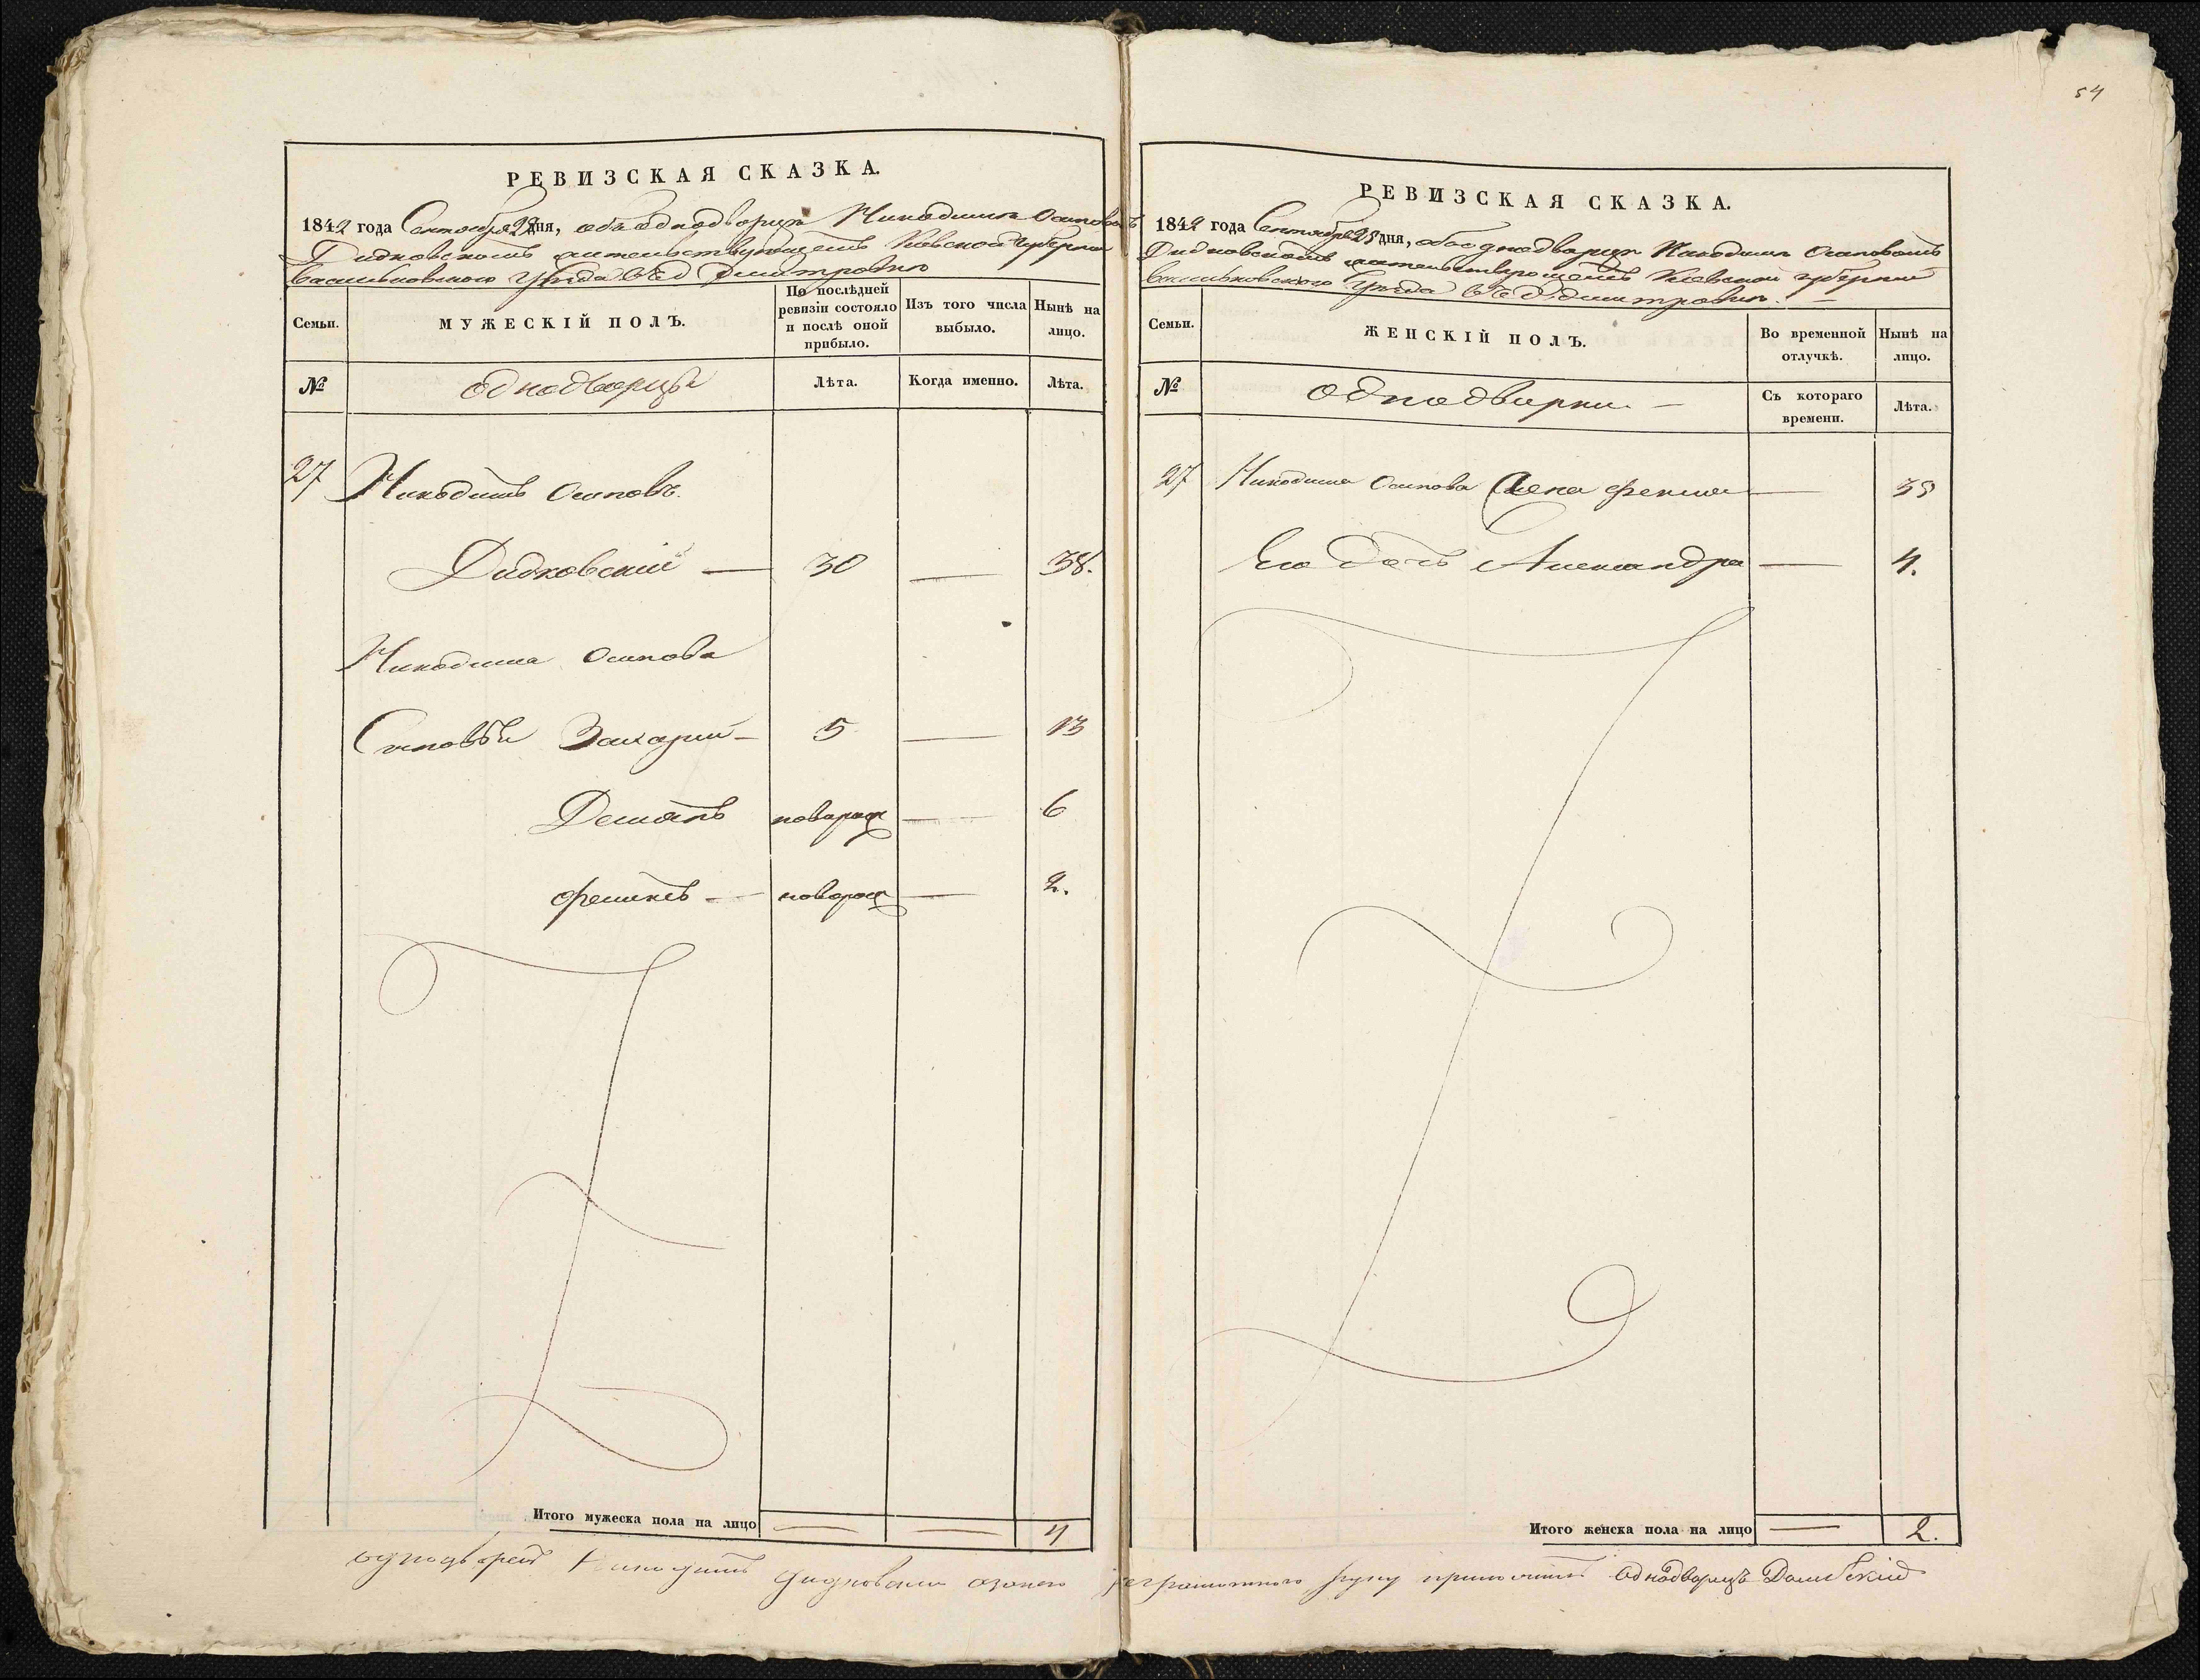 54
РЕВИЗСКАЯ СКАЗКА.
1842 года Сентября 28 дня, объ однодворцѣ Никодимѣ Осиповомъ
Дидковскомъ жительствующемъ Кіевской Губерніи
Васильковского Уѣзда въ д Дмитровкѣ
Семьи.
МУЖЕСКІЙ ПОЛЪ.
По послѣдней ревизіи состояло и послѣ оной прибыло.
Изъ того числа выбыло.
Нынѣ на лицо.
№
однодворцы
Лѣта.
Когда именно.
Лѣта.
27 Никодимъ Осиповъ
Дидковскій — 30 — 38.
Никодима Осипова
Сыновья Захарій — 5 — 13
Демянъ новорож — 6
Феликсъ — новорож — 2.
Итого мужеска пола на лицо — — 4
РЕВИЗСКАЯ СКАЗКА.
1842 года Сентября 28 дня, объ однодворцѣ Никодимѣ Осиповомъ
Дидковскомъ жительствующемъ Кіевской губерніи
Васильковского Уѣзда въ д Дмитровкѣ. —
Семьи.
ЖЕНСКІЙ ПОЛЪ.
Во временной отлучкѣ.
Нынѣ на лицо.
№
однодворки —
Съ котораго времени.
Лѣта.
27 Никодима Осипова жена —
Его дочь Александра — 4.
Итого женска пола на лицо — 2.
однодворецъ Никодимъ Дидковскій а за него неграмотного руку приложилъ Однодворецъ